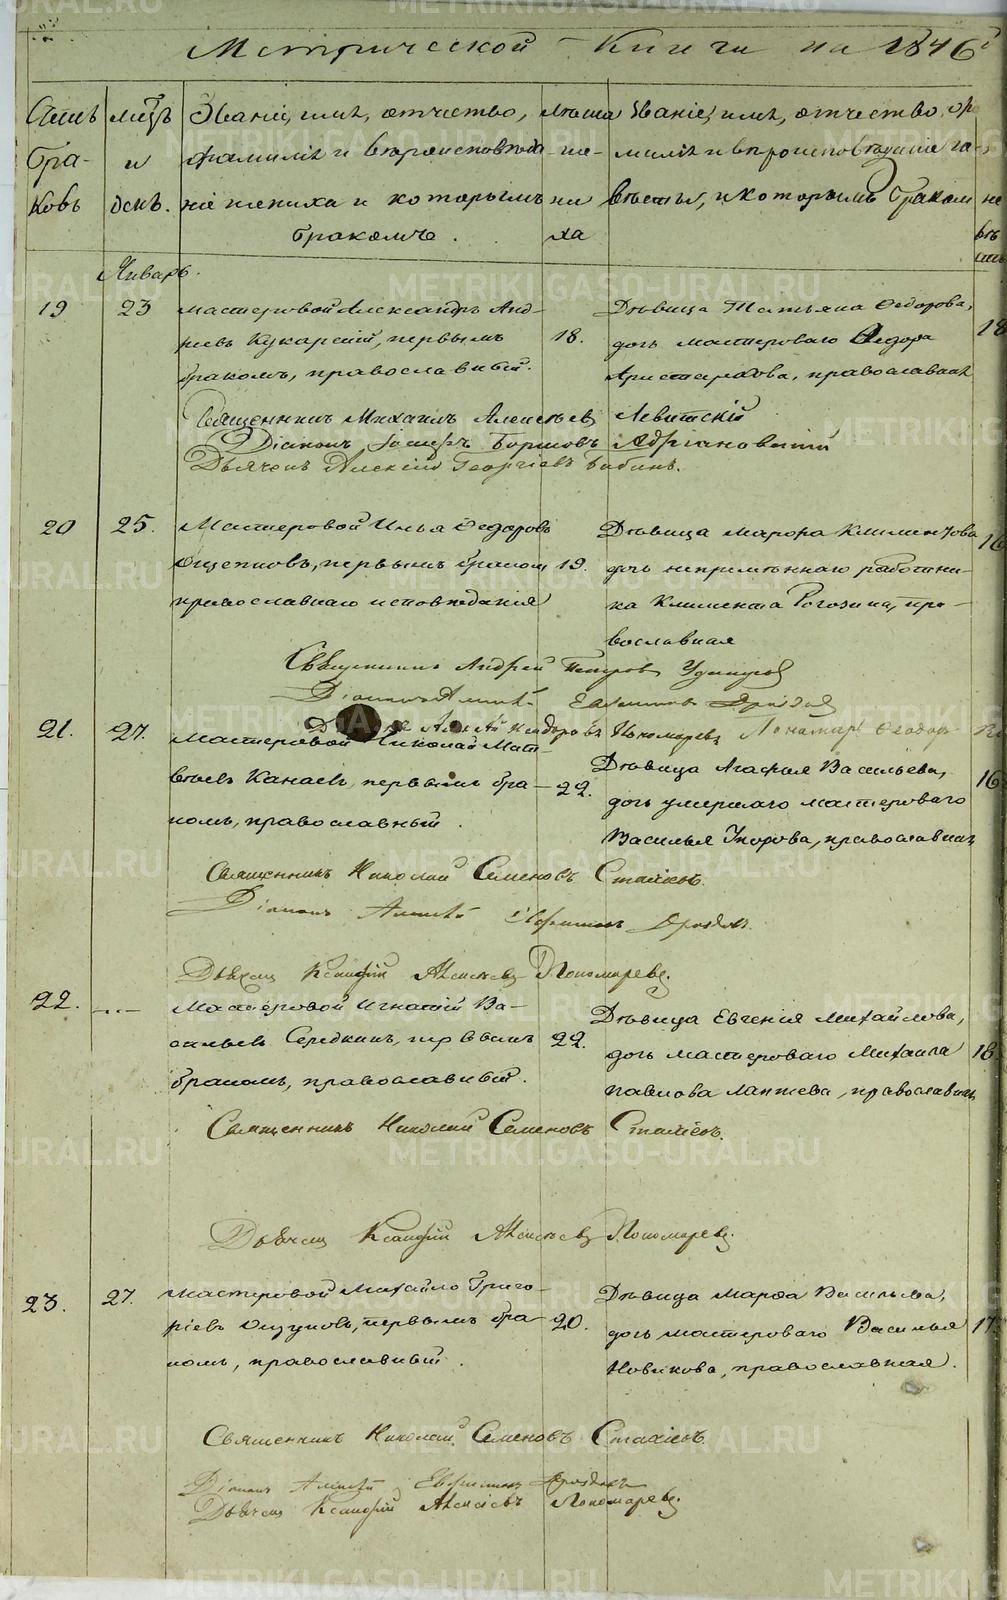 Метрической Книги на 1846
Счетъ
бра-
ковъ
мѣсцъ
и
день.
Званіе, имя, отчество,
фамилія и вѣроисповѣда-
ніе жениха и которымъ
бракомъ.
лѣта
же-
ни
ха
Званіе, имя, отчество,
милія и вѣроисповѣданіе
невѣсты, и которымъ бракомъ
не
вѣ
Январь.
19 23 мастеровой Александръ Анд-
реевъ Кукарскій, первымъ
бракомъ, православный.
18.
Дѣвица Татьяна Федорова,
дочь мастероваго Федора
Аристархова, православная
18
Священникъ Михаилъ Алексѣевъ Левитскій
Діаконъ Іосифъ Борисовъ Адріановскій
Дьячекъ Алексій Георгіевъ Бабинъ.
20 25. Мастеровой Илья Федоровъ
Ощепковъ, первымъ бракомъ
православнаго исповѣданія
19.
Дѣвица Марфа Климентова
дочь непремѣннаго работни-
ка Климента Рогозина, пра-
вославная
16
Священникъ Андрей Петровъ Удинцевъ
Діаконъ Алексѣй Евфимовъ Дроздовъ
Пономаревъ Пономарь Феодор
21. 27. Мастеровой Николай Мат-
вѣевъ Канаевъ, первымъ бра-
комъ, православный.
22.
Дѣвица Агафья Васильева,
дочь умершаго мастероваго
Василья Упорова, православная
16
Священникъ Николай Семеновъ Стахіевъ.
Діаконъ Алексѣй Евфимовъ Дроздовъ.
Дьячекъ Ксенофонтъ Алексѣевъ Пономаревъ.
22. ---- Мастеровой Игнатій Ва-
сильевъ Середкинъ, первымъ
бракомъ, православный.
22.
Дѣвица Евгенія Михайлова,
дочь мастероваго Михаила
Павлова Лаптева, православная
18
Священникъ Николай Семеновъ Стахіевъ.
Дьячекъ Ксенофонтъ Алексѣевъ Пономаревъ.
23. 27. Мастеровой Михайло Григо-
ріевъ Опгуновъ, первымъ бра-
комъ, православный.
20.
Дѣвица Марфа Васильева,
дочь мастероваго Василья
Новикова, православная.
17
Священникъ Николай Семеновъ Стахіевъ
Діаконъ Алексѣй Евфимовъ Дроздовъ
Дьячекъ Ксенофонтъ Алексѣевъ Пономаревъ.
METRIKI.GASO-URAL.RU